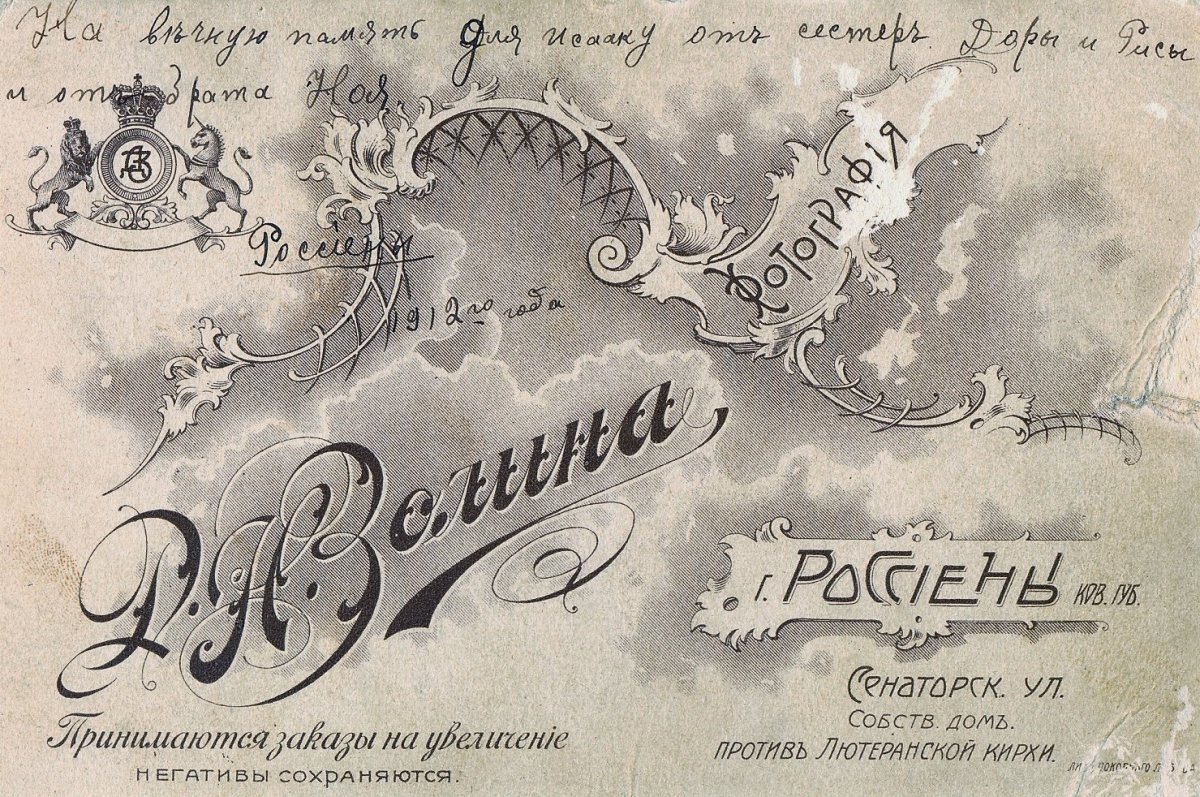 На вѣчную память для Исааку отъ сестеръ Доры и Рисы
и отъ брата Ноя.
Россіены
1912го года
Фотографія
Волина
г. Россіены Ков. губ.
Сенаторск. ул.
Собств. домъ.
противъ Лютеранской кирхи.
Принимаются заказы на увеличеніе
негативы сохраняются.